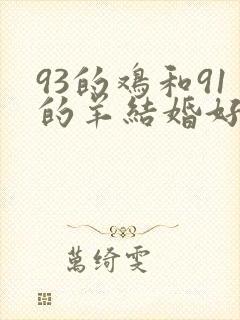 93的鸡和91
的羊結婚好
萬绮雯